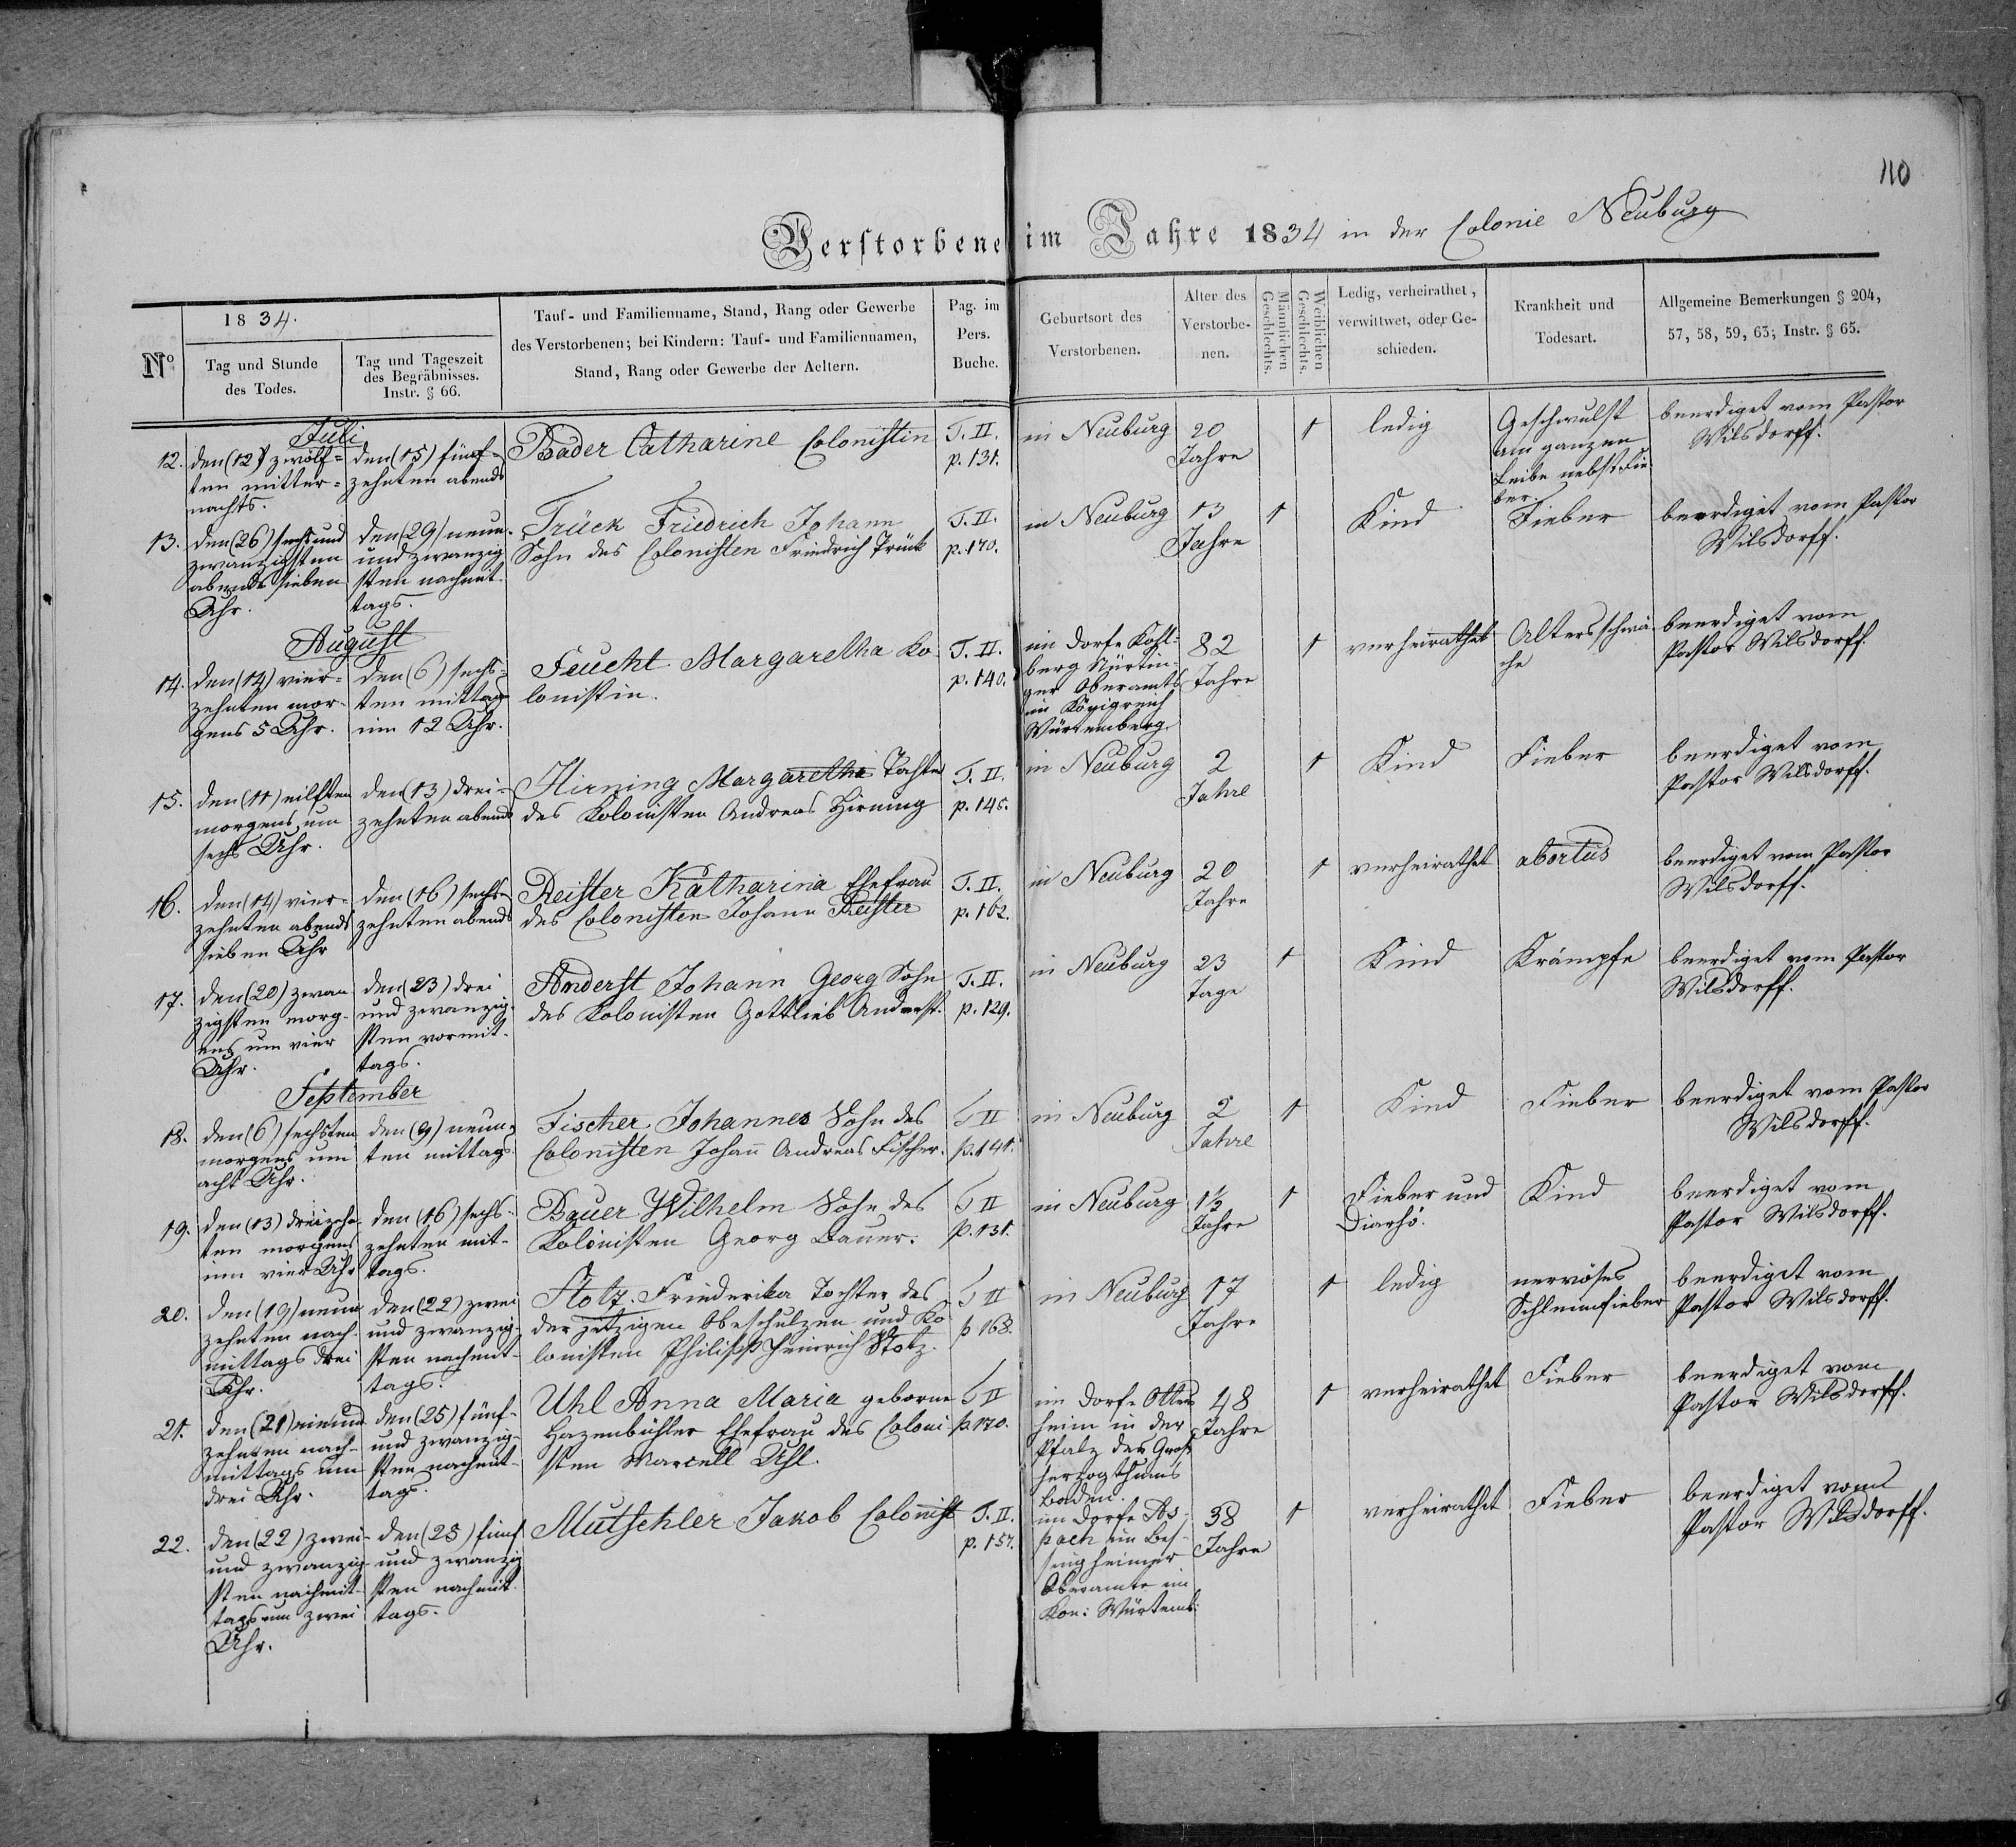 110
Verstorbene im Jahre 1834 in der Colonie Neuburg
No
1834.
Tag und Stunde
des Todes.
Tag und Tageszeit
des Begräbnisses.
Instr. § 66.
Tauf- und Familienname, Stand, Rang oder Gewerbe
des Verstorbenen; bei Kindern: Tauf- und Familiennamen,
Stand, Rang oder Gewerbe der Aeltern.
Pag. im
Pers.
Buche.
Geburtsort des
Verstorbenen.
Alter des
Verstorbe-
nen.
Männlichen
Geschlechts.
Weiblichen
Geschlechts.
Ledig, verheirathet,
verwittwet, oder Ge-
schieden.
Krankheit und
Todesart.
Allgemeine Bemerkungen § 204,
57, 58, 59, 63; Instr. § 65.
Juli
12.
den (12) zwölf=
ten mitter=
nachts.
den (15) fünf=
zehnten abends
Bader Catharine Colonistin
T. II.
p. 131.
in Neuburg
20
Jahre
1
ledig
Geschwulst
am ganzen
Leibe nebst Fie
ber.
beerdiget vom Pastor
Wilsdorff.
13.
den (26) sechs und
zwanzigsten
abends sieben
Uhr.
den (29) neun-
und zwanzig
sten nachmit-
tags.
Trück Friedrich Johann
Sohn des Colonisten Friedrich Trück
T. II.
p. 170.
in Neuburg
13
Jahre
1
Kind
Fieber
beerdiget vom Pastor
Wilsdorff.
August
14.
den (14) vier-
zehnten mor-
gens 5 Uhr.
den (6) sechs-
ten mittag
um 12 Uhr.
Feucht Margaretha Ko
lonistin.
T. II.
p. 140.
im Dorfe Kohl-
berg Nürtin-
ger Oberamts
im Königreich
Würtemberg
82
Jahre
1
verheirathet
Altersschwä
che
beerdiget vom
Pastor Wilsdorff.
15.
den (11) eilften
morgens um
sechs Uhr.
den (13) drei-
zehnten abends
Hirning Margaretha Tochter
des Kolonisten Andreas Hirning
T. II.
p. 145.
in Neuburg
2
Jahre
1
Kind
Fieber
beerdiget vom
Pastor Wilsdorff.
16.
den (14) vier-
zehnten abends
sieben Uhr
den (16) sechs-
zehnten abends
Reister Katharina Ehefrau
des Colonisten Johann Reister
T. II.
p. 162.
in Neuburg
20
Jahre
1
verheirathet
abortus
beerdiget vom Pastor
Wilsdorff.
17.
den (20) zwan
zigsten morg-
ens um vier
Uhr.
den (23) drei
und zwanzig-
sten vormit-
tags.
Anderst Johann Georg Sohn
des Kolonisten Gottlieb Anderst.
T. II.
p. 129.
in Neuburg
23
Tage
1
Kind
Krämpfe
beerdiget vom Pastor
Wilsdorff.
September
18.
den (6) sechsten
morgens um
acht Uhr.
den (9) neun-
ten mittags.
Fischer Johannes Sohn des
Colonisten Johañ Andreas Fischer.
T II
p. 141.
in Neuburg
2
Jahre
1
Kind
Fieber
beerdiget vom Pastor
Wilsdorff.
19.
den (13) dreizehn-
ten morgens
um vier Uhr
den (16) sechs-
zehnten mit-
tags.
Bauer Wilhelm Sohn des
Kolonisten Georg Bauer.
T II
p. 131.
in Neuburg
1½
Jahre
1
Fieber und
Diarhö.
Kind
beerdiget vom
Pastor Wilsdorff.
20.
den (19) neun
zehnten nach-
mittags drei
Uhr.
den (22) zwei
und zwanzig-
sten nachmit-
tags.
Stotz Friederika Tochter des
der jetzigen Obeschulzen und Ko
lonisten Philipp Heinrich Stotz.
T II
p 168.
in Neuburg
17
Jahre
1
ledig
nervöses
Schleimfieber
beerdiget vom
Pastor Wilsdorff.
21.
den (21) einund
zehnten nach-
mittags um
drei Uhr.
den (25) fünf-
und zwanzig-
sten nachmit-
tags.
Uhl Anna Maria geborne
Hazenbühler Ehefrau des Coloni-
sten Marcell Uhl.
T II
p. 170.
im Dorfe Otters
heim in der
Pfalz des Groß
herzogthums
Baden.
48
Jahre
1
verheirathet
Fieber
beerdiget vom
Pastor Wilsdorff.
22.
den (22) zwei-
und zwanzig-
sten nachmit-
tags um zwei
Uhr.
den (25) fünf
und zwanzig
sten nachmit-
tags.
Mutschler Jakob Colonist
T. II.
p. 157.
im Dorfe
pach im Bes-
sigheimer
Oberamte im
Kön: Würtemb:
38
Jahre
1
verheirathet
Fieber
beerdiget vom
Pastor Wilsdorff.